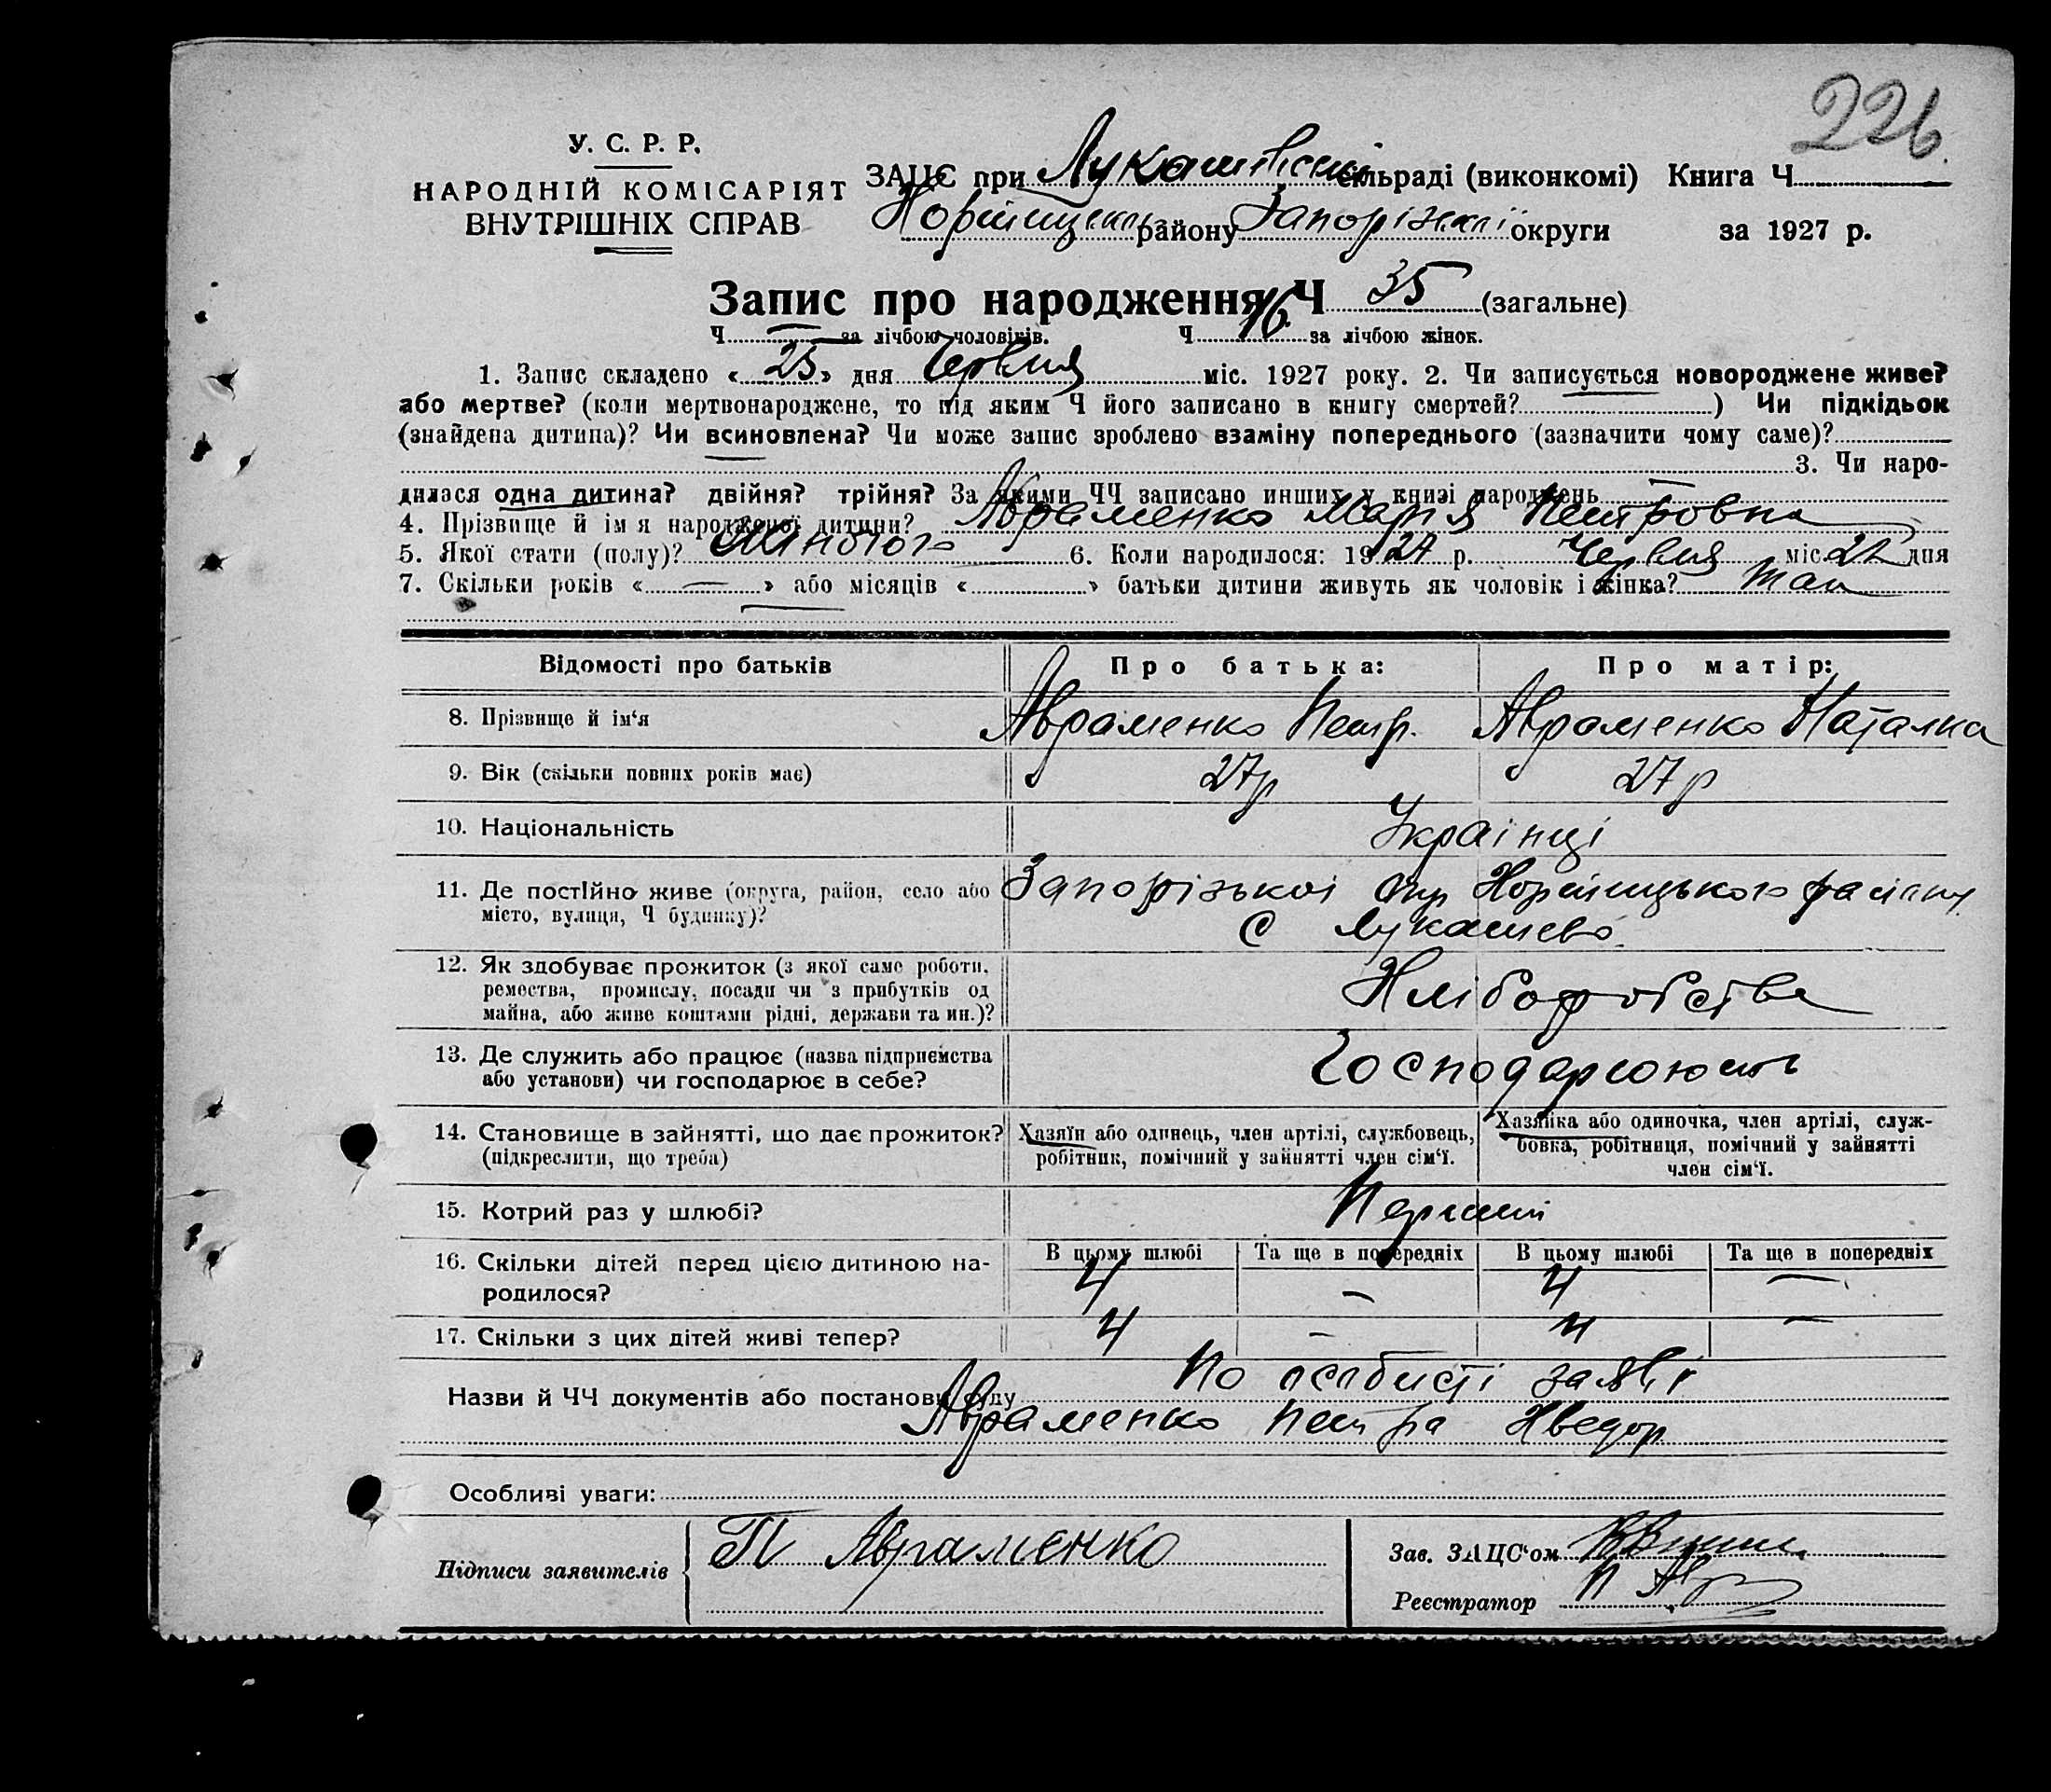 226
У. С. Р. Р.
НАРОДНІЙ КОМІСАРІЯТ
ВНУТРІШНІХ СПРАВ
ЗАЦС при Лукашівській сільраді (виконкомі) Книга Ч
району Запорізької округи за 1927 р.
Запис про народження Ч 35 (загальне)
Ч — за лічбою чоловіків. Ч 16 за лічбою жінок.
1. Запис складено « 25 » дня Червня міс. 1927 року. 2. Чи записується новороджене живе?
або мертве? (коли мертвонароджене, то під яким Ч його записано в книгу смертей? ) Чи підкідьок
(знайдена дитина)? Чи всиновлена? Чи може запис зроблено взаміну попереднього (зазначити чому саме)?
3. Чи наро-
дилася одна дитина? двійня? трійня? За якими ЧЧ записано инших у книзі народжень —
4. Прізвище й ім я народженої дитини? Авраменко Марія Петровна
5. Якої стати (полу)? Жіночого 6. Коли народилося: 1927 р. Червня міс. дня
7. Скільки років « — » або місяців « » батьки дитини живуть як чоловік і жінка? так
Відомості про батьків Про батька: Про матір:
8. Прізвище й ім‘я Авраменко Петр. Авраменко Наталка
9. Вік (скільки повних років має) 27 р 27 р
10. Національність Українці
11. Де постійно живе (округа, район, село або Запорізької окр району
місто, вулиця, Ч будинку)? С Лукашево
12. Як здобуває прожиток (з якої саме роботи,
ремества, промислу, посади чи з прибутків од Хліборобства
майна, або живе коштами рідні, держави та ин.)?
13. Де служить або працює (назва підприємства Господарюють
або установи) чи господарює в себе?
14. Становище в зайнятті, що дає прожиток? Хазяїн або одинець, член артілі, службовець, Хазяйка або одиночка, член артілі, служ-
(підкреслити, що треба) робітник, помічний у зайнятті член сім‘ї. бовка, робітниця, помічний у зайнятті
член сім‘ї.
15. Котрий раз у шлюбі? Перший
16. Скільки дітей перед цією дитиною на- В цьому шлюбі Та ще в попередніх В цьому шлюбі Та ще в попередніх
родилося? 4 — 4 —
17. Скільки з цих дітей живі тепер? 4 — 4 —
Назви й ЧЧ документів або постанови суду По особисті заяві
Авраменко Петра
Особливі уваги:
Підписи заявителів П Авраменко Зав. ЗАЦС‘ом
Реєстратор